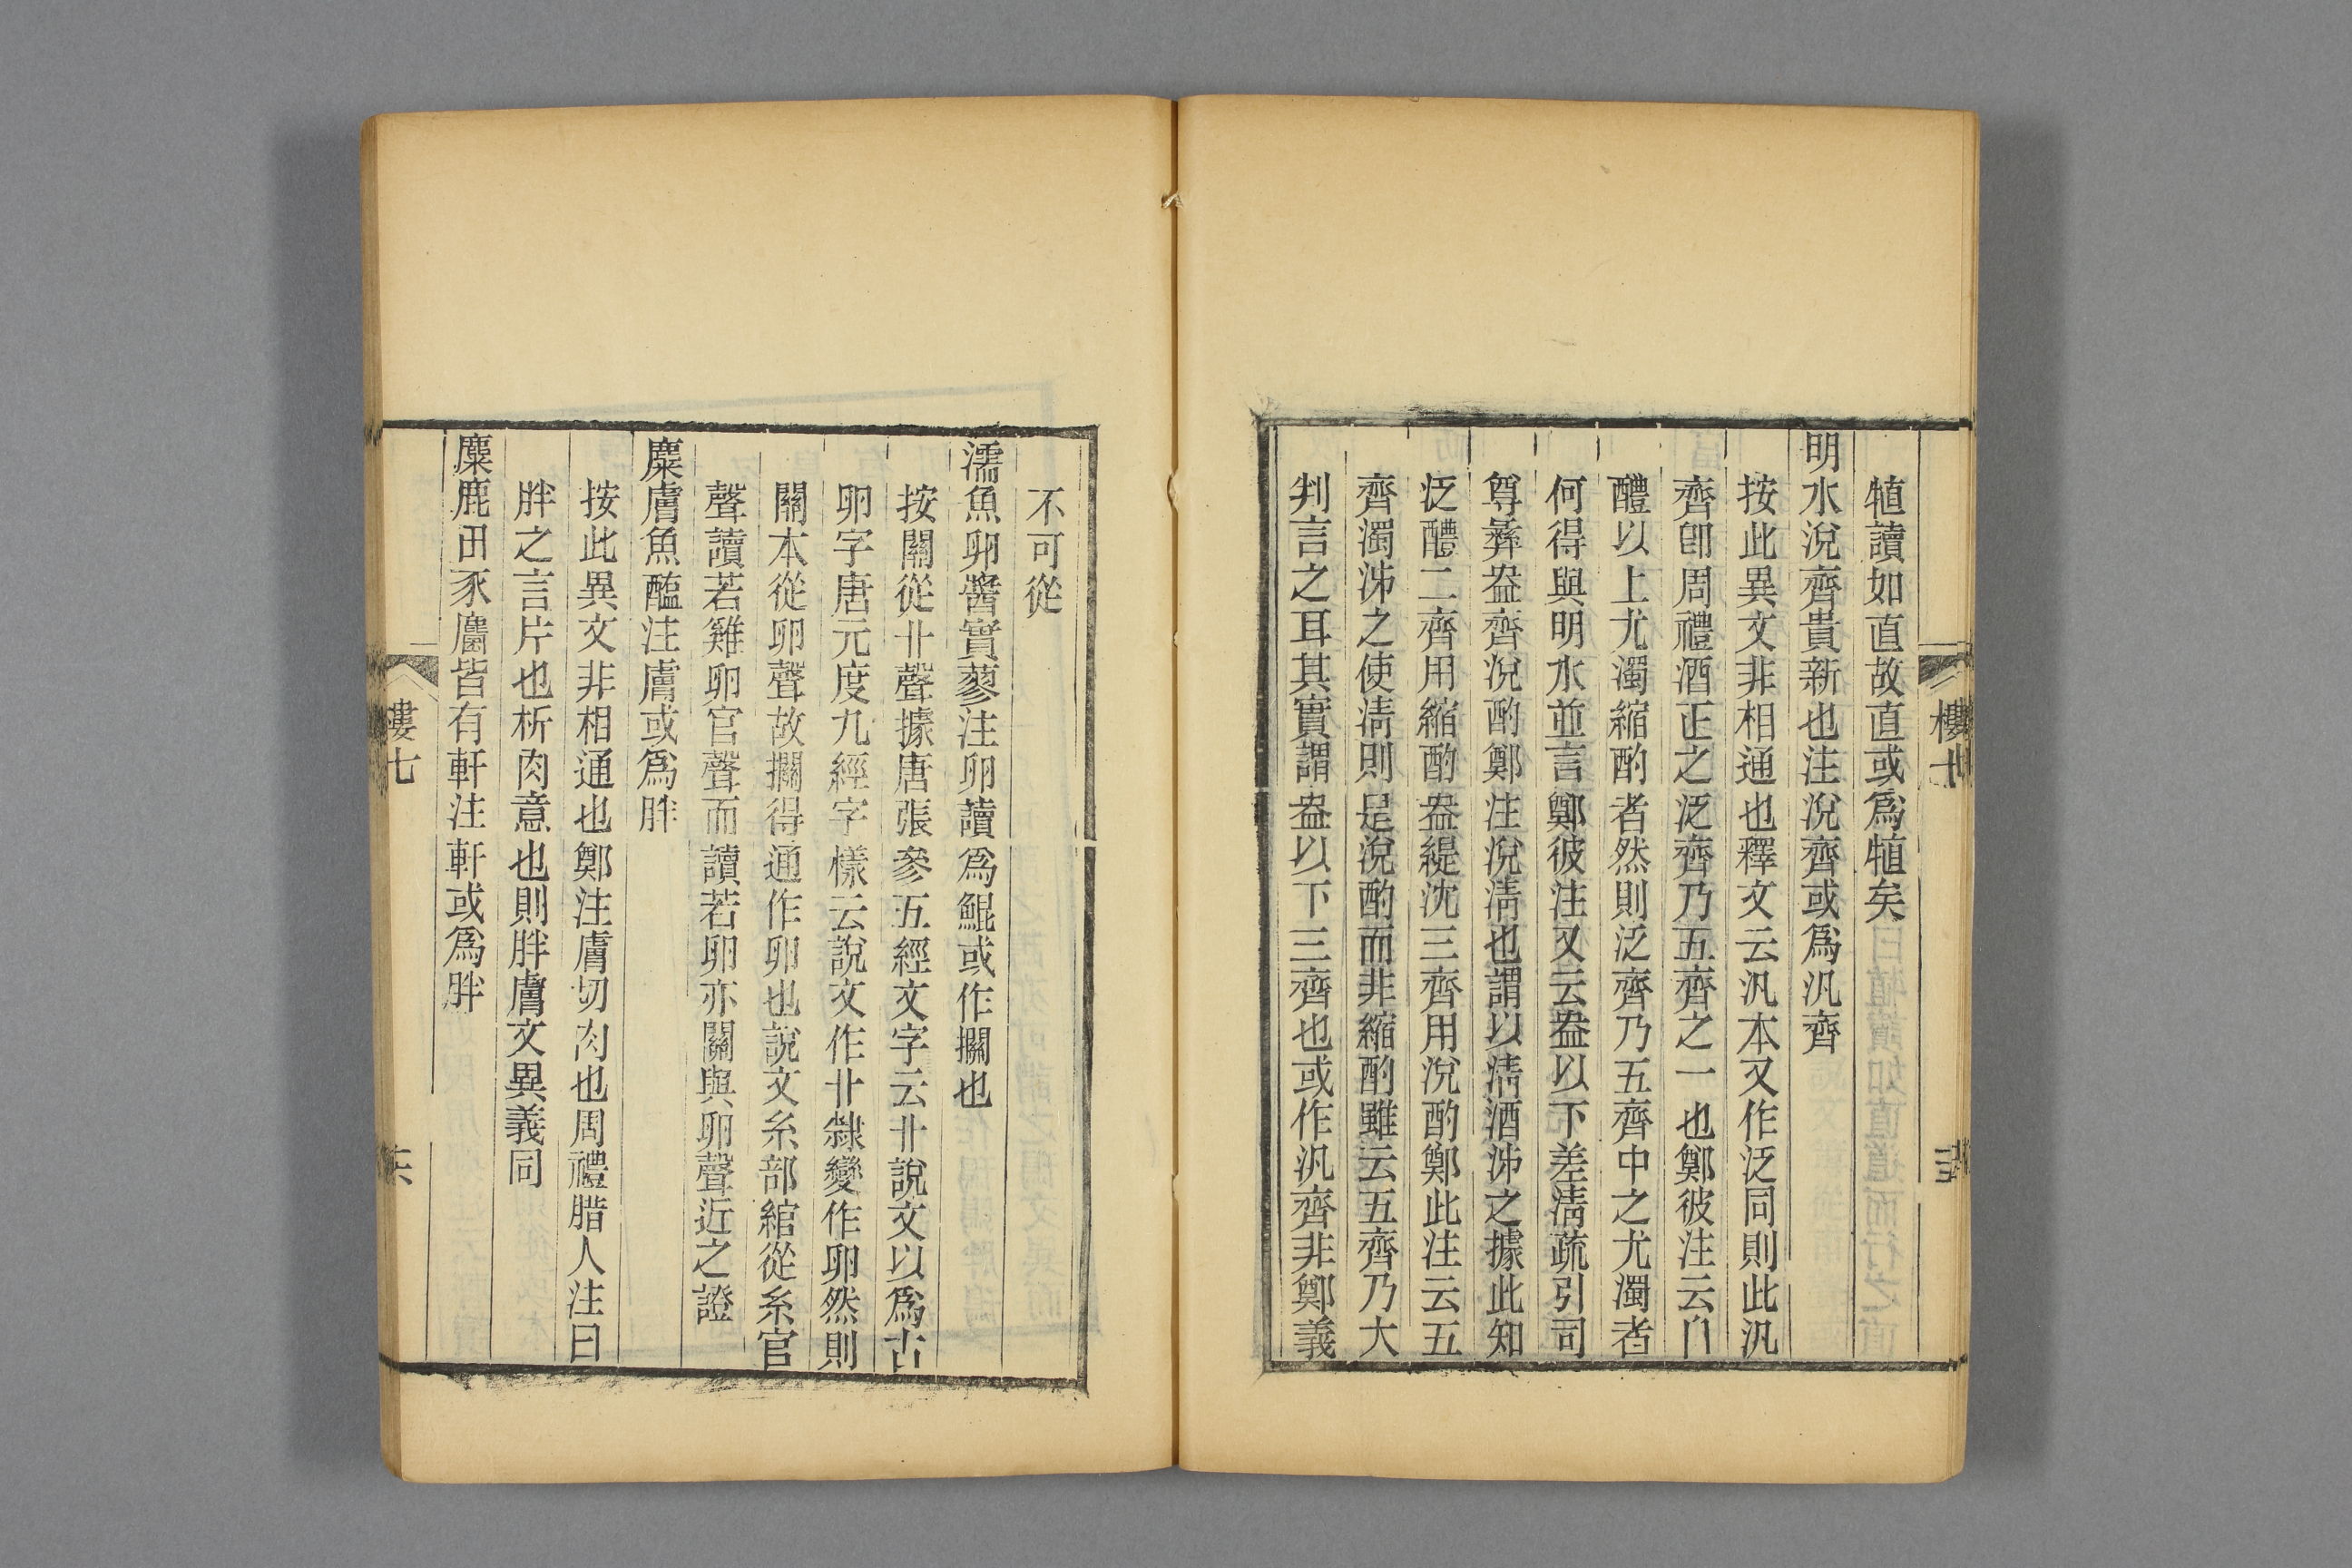 犆讀如直故直或爲犆矣
明水涚齊貴新也注涚齊或爲汎齊
按此異文非相通也釋文云汎本又作泛同則此汎
齊卽周禮酒正之泛齊乃五齊之一也鄭彼注云自
醴以上尤濁縮酌者然則泛齊乃五齊中之尤濁者
何得與明水並言鄭彼注又云盎以下差淸疏引司
尊彝盎齊涚酌鄭注涚淸也謂以淸酒泲之據此知
泛醴二齊用縮酌盎緹沈三齊用涚酌鄭此注云五
齊濁泲之使淸則是涚酌而非縮酌雖云五齊乃大
判言之耳其實謂盎以下三齊也或作汎齊非鄭義
不可從
濡魚卵醬實蓼注卵讀爲鯤或作攔也
按關從卝聲據唐張參五經文字云卝說文以爲古
卵字唐元度九經字樣云說文作卝隸變作卵然則
關本從卵聲故攔得通作卵也說文糸部綰從糸官
聲讀若雞卵官聲而讀若卵亦關與卵聲近之證
麋膚魚醢注膚或爲胖
按此異文非相通也鄭注膚切肉也周禮腊人注曰
胖之言片也析肉意也則胖膚文異義同
麋鹿田豕麕皆有軒注軒或爲胖
樓七